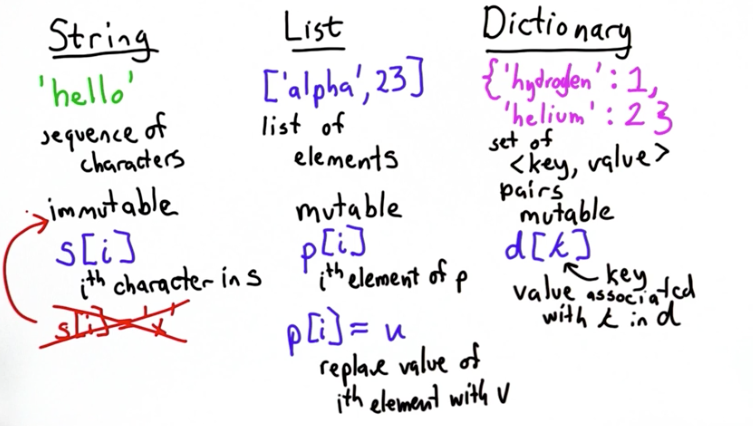 String
'hello'
sequence of
characters
immutable
s[i]
ith character in s
s[i] = 'x'
List
['alpha', 23]
list of
elements
mutable
p[i]
ith element of p
p[i] = u
replave value of
ith element with V
Dictionary
{'hydrogen': 1,
'helium': 2}
set of
<key, value>
pairs
mutable
d[k]
key
value associated
with k in d